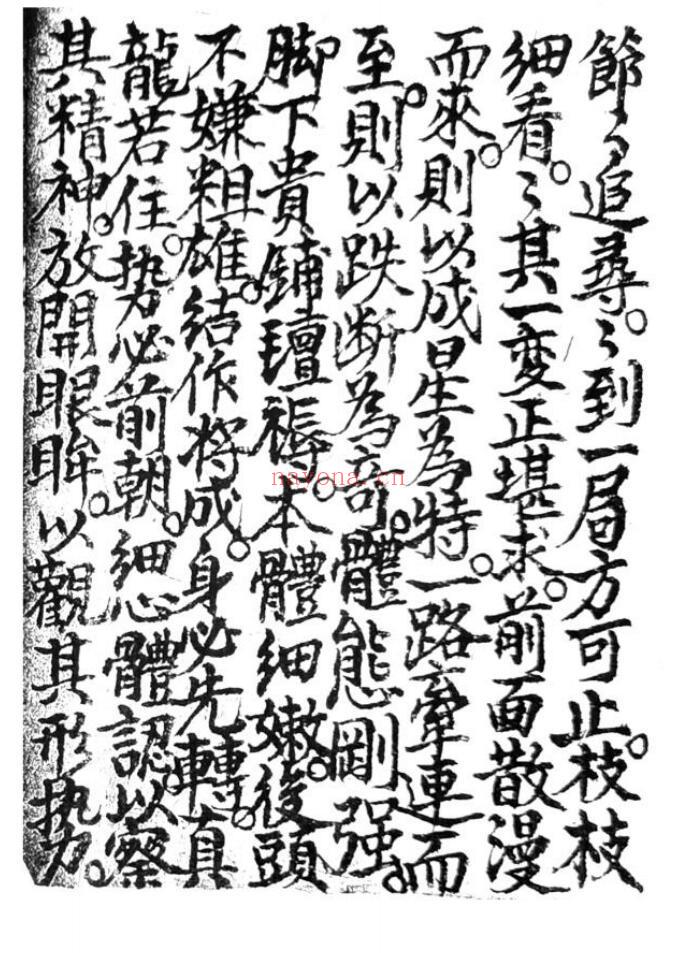 節々追尋。〻到一局方可止。枝枝
細看。〻其一变正堪求。前面散漫
而來。則以成星為特。一路牽連而
至。則以跌断為奇。體態剛强。
脚下貴鋪氊褥。本體细嫩。後頭
不嫌粗雄。結作将成。身必先轉。真
龍若住。势必前朝。細心體認。以察
其精神。放開眼眸。以觀其形势。
nayona.cn